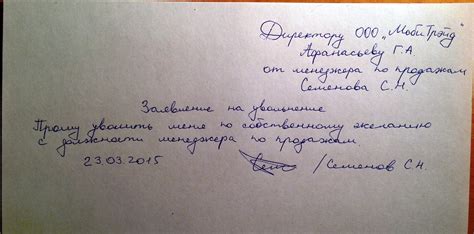 Директору ООО „МобиТрэйд"
Афанасьеву Г.А
от менеджера по продажам
Семенова С.Н.
Заявление на увольнение
Прошу уволить меня по собственному желанию
с должности менеджера по продажам.
23.03.2015 /Семенов С.Н.